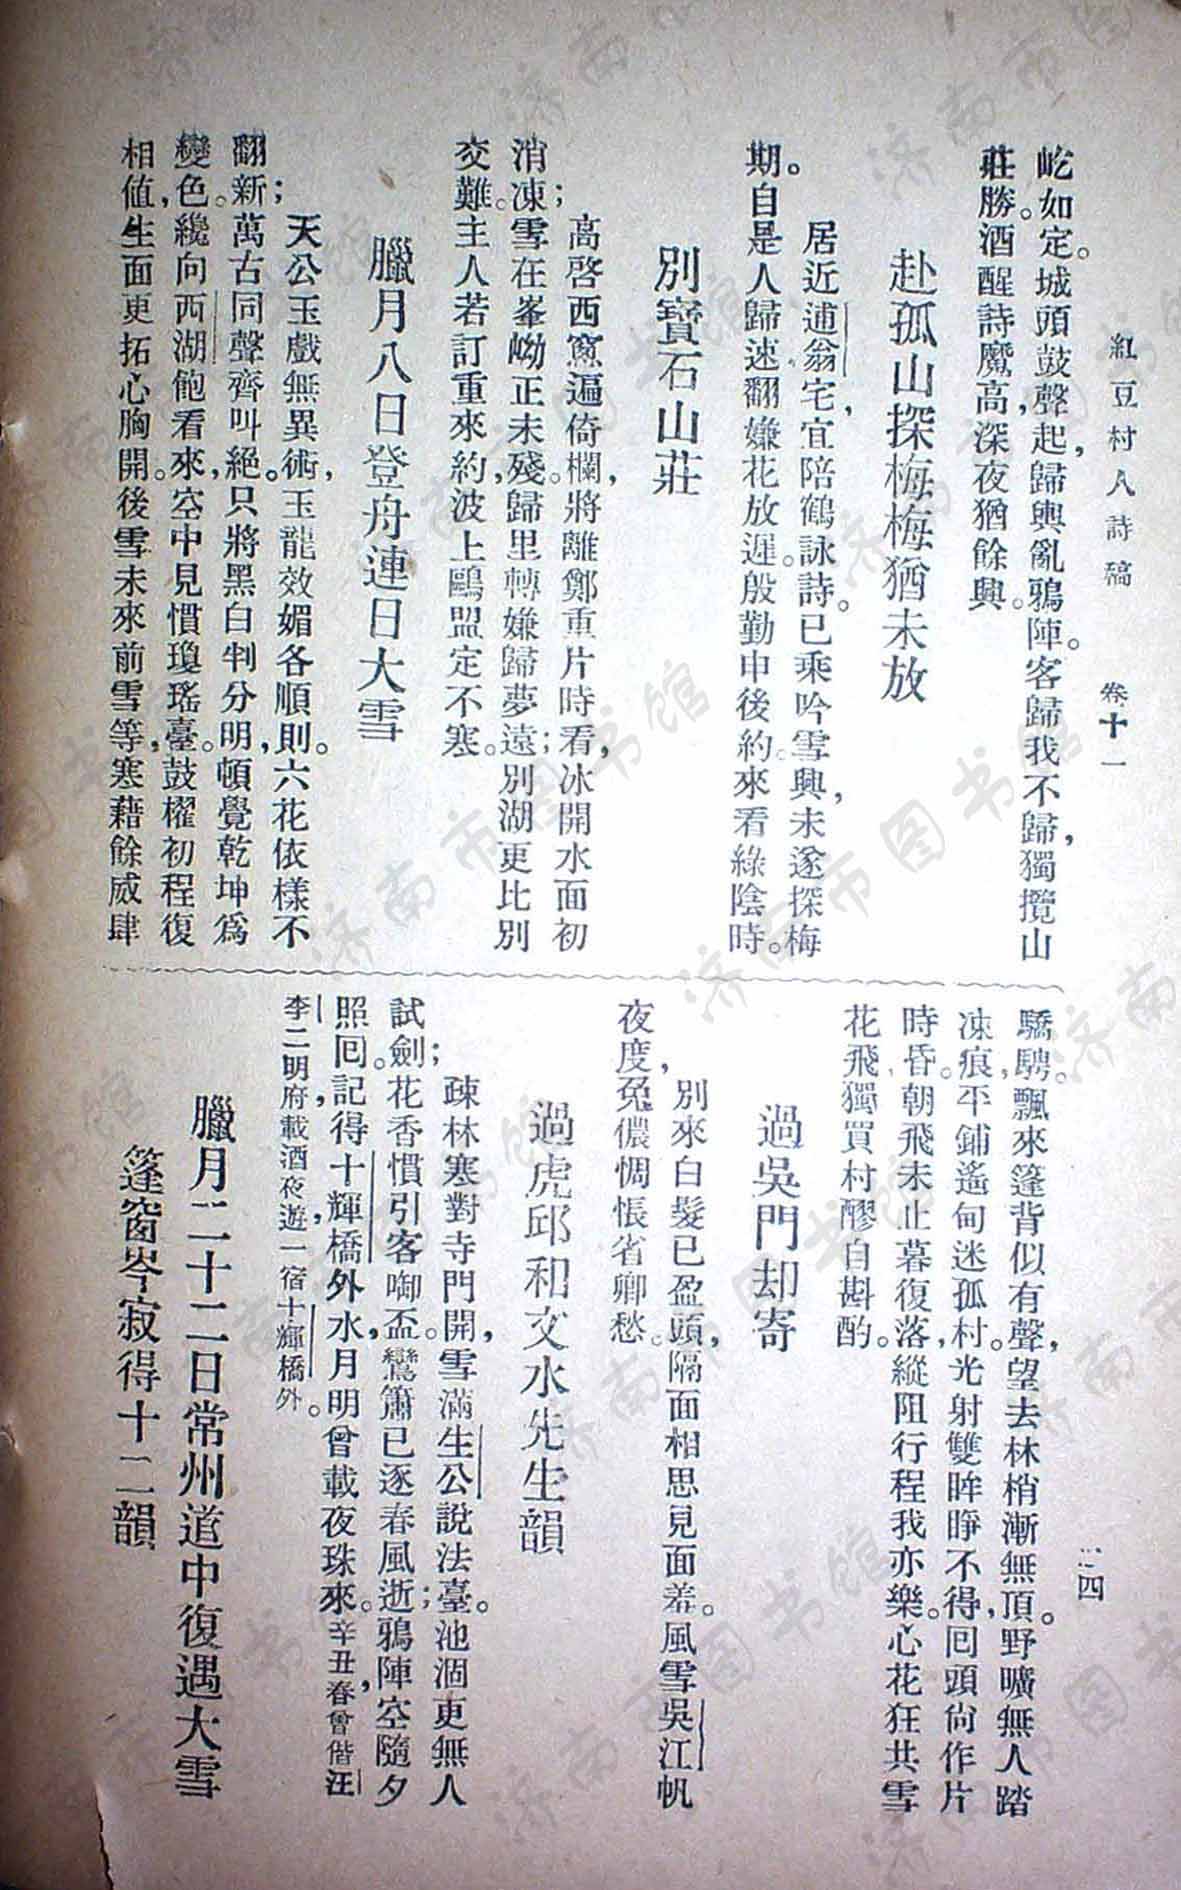 紅豆村人詩稿　卷十一
三四
屹如定。城頭鼓聲起，歸輿亂鴉陣。客歸我不歸，獨攬山
莊勝。酒醒詩魔高，深夜猶餘興。
赴孤山探梅梅猶未放
居近逋翁宅，宜陪鶴詠詩。已乘吟雪興，未遂探梅
期。自是人歸速，翻嫌花放遲。殷勤申後約，來看綠陰時。
別寶石山莊
高啓西窻遍倚欄，將離鄭重片時看，冰開水面初
消凍；雪在峯㘭正未殘。歸里轉嫌歸夢遠；別湖更比別
交難。主人若訂重來約，波上鷗盟定不寒。
臘月八日登舟連日大雪
天公玉戲無異術，玉龍效媚各順則。六花依樣不
翻新；萬古同聲齊叫絕。只將黑白判分明，頓覺乾坤爲
變色。纔向西湖飽看來，空中見慣瓊瑤臺。鼓櫂初程復
相値，生面更拓心胸開。後雪未來前雪等，寒藉餘威肆
驕騁。飄來篷背似有聲，望去林梢漸無頂。野曠無人踏
凍痕，平鋪遙甸迷孤村。光射雙眸睜不得，回頭尙作片
時昏。朝飛未止暮復落，縱阻行程我亦樂。心花狂共雪
花飛，獨買村醪自斟酌。
過吳門却寄
別來白髮已盈頭，隔面相思見面羞。風雪吳江帆
夜度，免儂惆悵省卿愁。
過虎邱和文水先生韻
疎林寒對寺門開，雪滿生公說法臺。池涸更無人
試劍；花香慣引客啣盃。鸞簫已逐春風逝；鴉陣空隨夕
照回。記得十輝橋外水，月明曾載夜珠來。辛丑春曾偕汪
李二明府，載酒夜遊一宿十輝橋外。
臘月二十二日常州道中復遇大雪
篷窗岑寂得十二韻